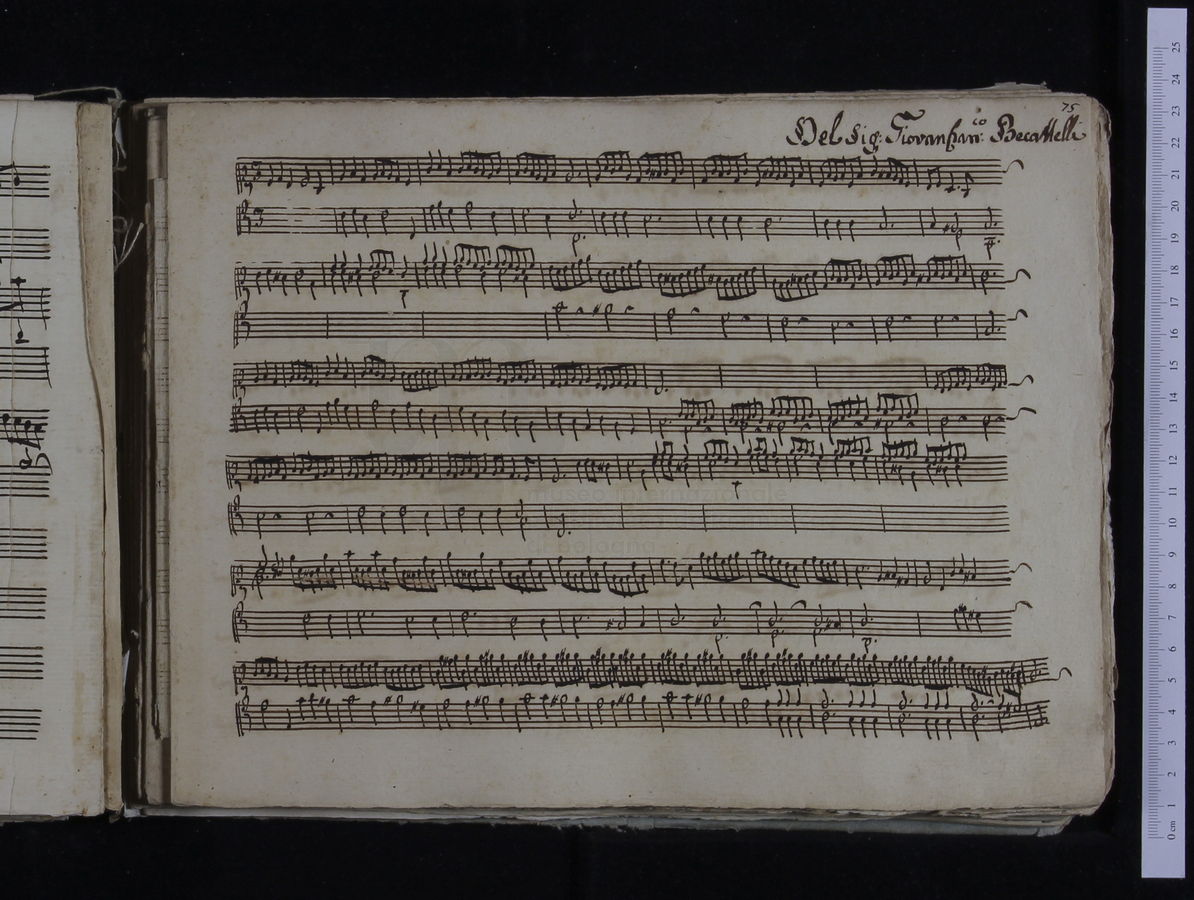 75
Del Sig: Giovanfran:co Becattelli
museo internazionale
bologna
25
24
23
22
21
20
19
18
17
16
15
14
13
12
11
10
9
8
7
6
5
4
3
2
1
0 cm